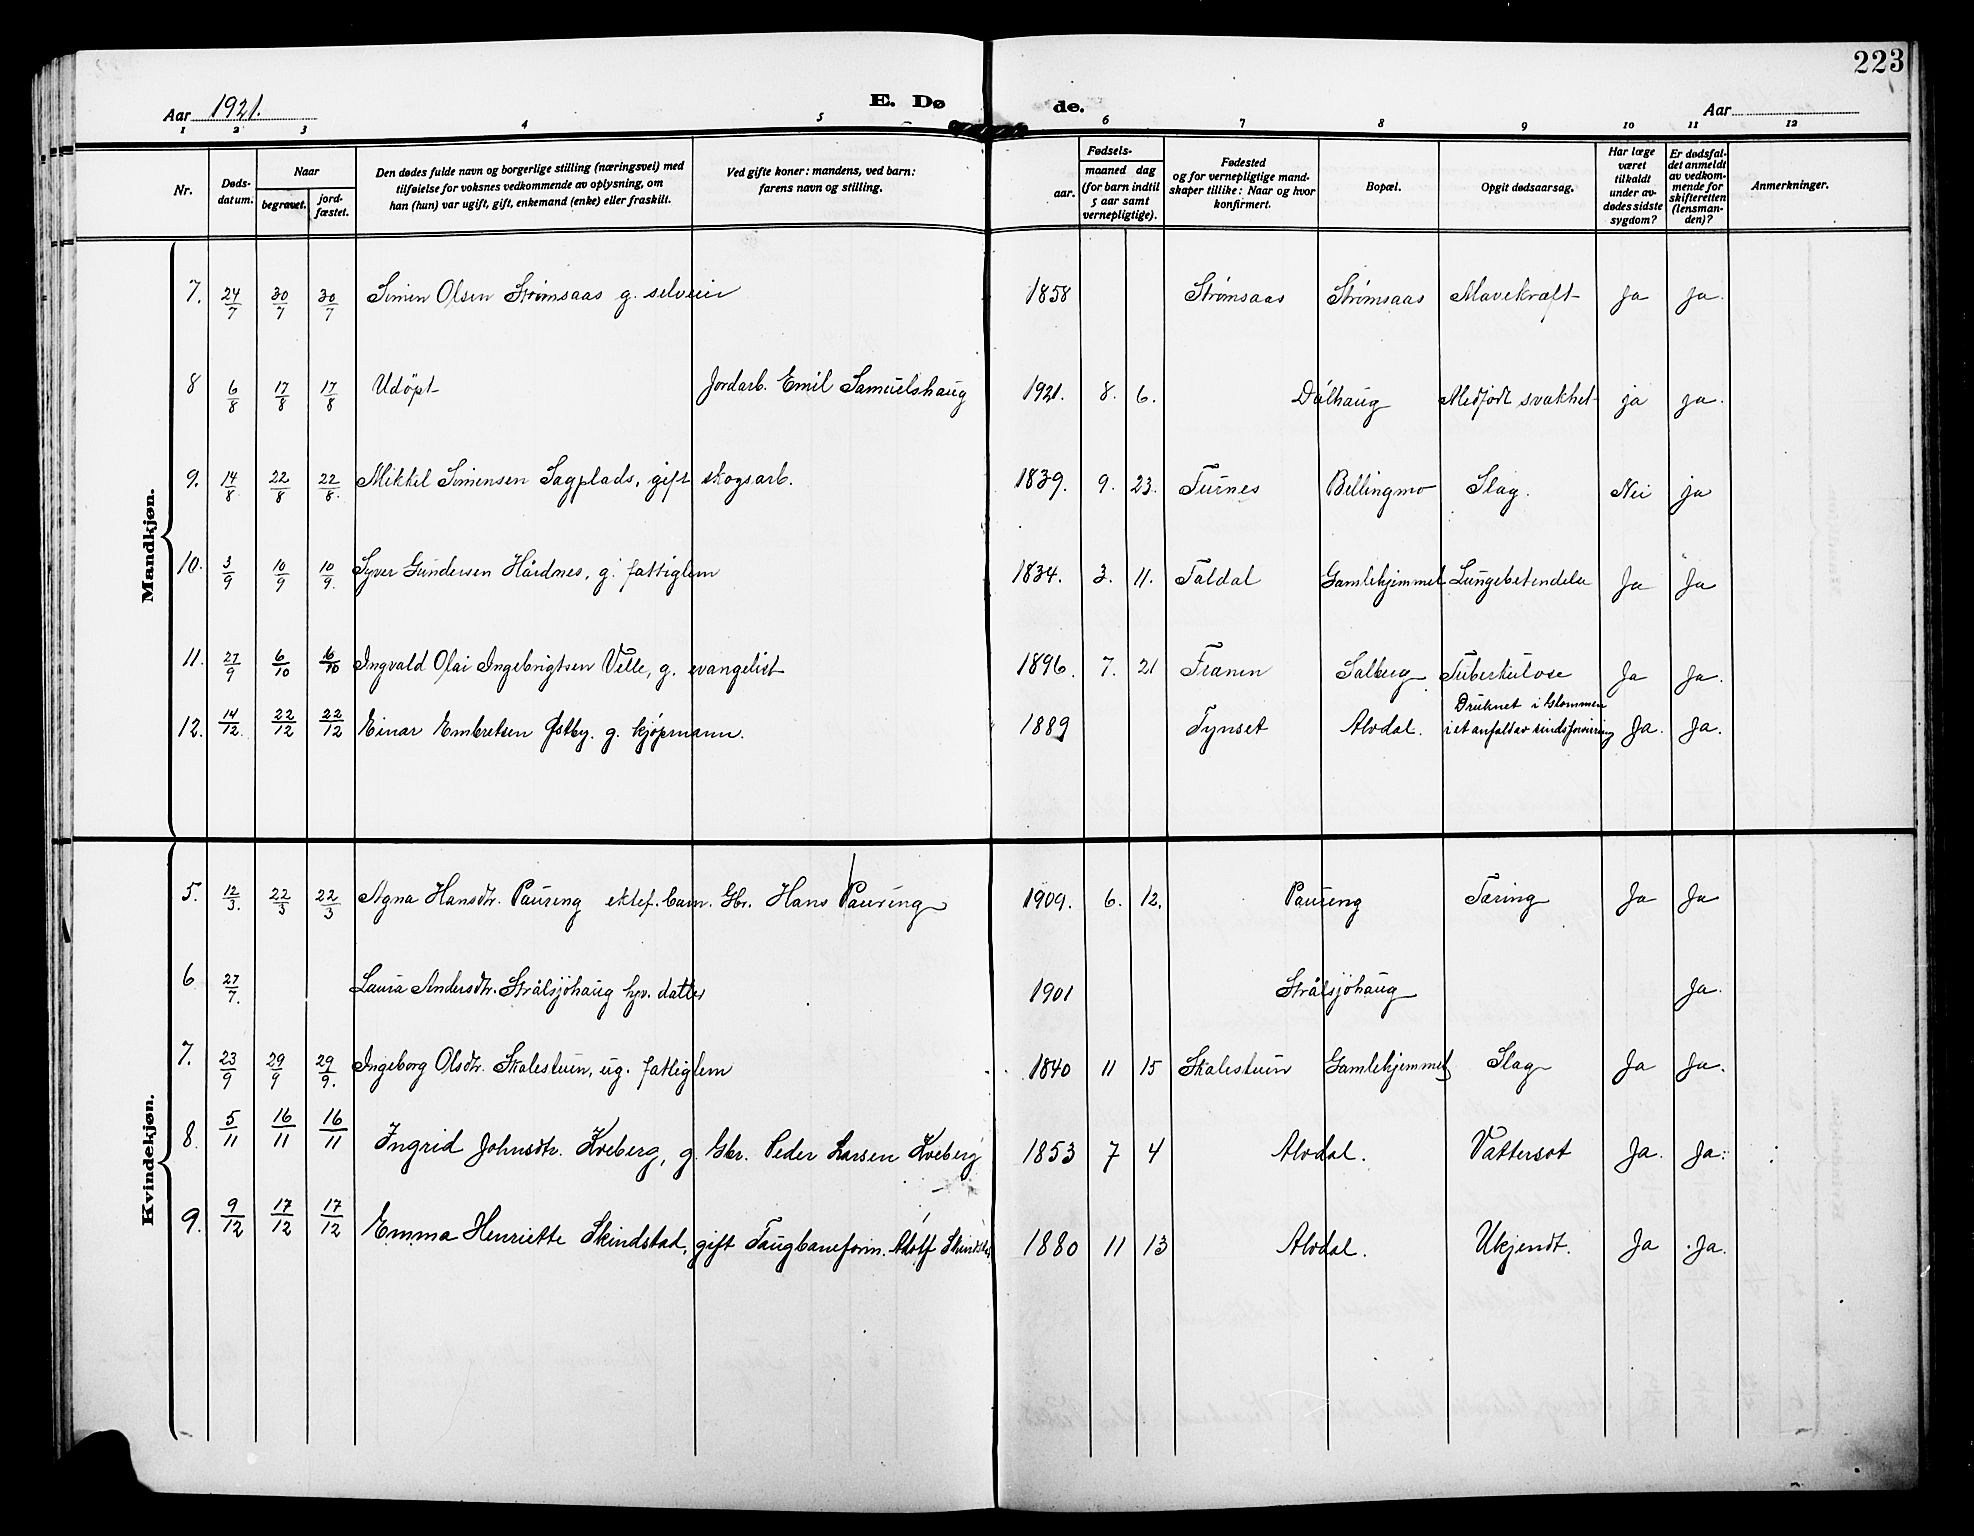 223
Aar 1921. E. Dø de. Aar
1 2 3 4 5 6 7 8 9 10 11 12
Nr. Døds-datum. Naar begravet. jord-fæstet. Den dødes fulde navn og borgerlige stilling (næringsvei) med tilføielse for voksnes vedkommende av oplysning, om han (hun) var ugift, gift, enkemand (enke) eller fraskilt. Ved gifte koner: mandens, ved barn: farens navn og stilling. Fødsels- aar. maaned dag (for barn indtil 5 aar samt vernepligtige). Fødested og for vernepligtige mand-skaper tillike: Naar og hvor konfirmert. Bopæl. Opgit dødsaarsag. Har læge været tilkaldt under av-dødes sidste sygdom? Er dødsfal-det anmeldt av vedkom-mende for skifteretten (lensman-den)? Anmerkninger.
Mandkjøn.
7. 24/7 30/7 30/7 Simen Olsen Strømsaas g. selveier 1858 Strømsaas Strømsaas Mavekræft Ja Ja.
8 6/8 17/8 17/8 Udöpt Jordarb. Emil Samuelshaug 1921. 8. 6. Dålhaug Medfödt svakhet ja ja.
9. 14/8 22/8 22/8. Mikkel Simensen Sagplads, gift skogsarb. 1839. 9. 23. Furnes Bellingmo Slag. Nei ja
10. 3/9 10/9 10/9. Syver Gundersen Hårdnes, g. fattiglem 1834. 3. 11. Foldal Gamlehjemmet Lungebetendelse Ja Ja
11. 27/9 6/10 6/10 Ingvald Olai Ingebrigtsen Velle, g. evangelist 1896. 7. 21 Frænen Solberg Tuberkulose Ja Ja.
Druknet i Glommen
12. 14/12. 22/12 22/12 Einar Embretsen Østby. g. kjøpmann. 1889 Tynset Alvdal. i et anfald av sindsforvirring Ja. Ja.
Kvindekjøn.
5. 12/3. 22/3 22/3 Agna Hansdtr. Paureng ektef. barn. Gbr. Hans Paureng 1909. 6. 12. Paureng Tæring Ja Ja
6 27/7. Laura Andersdtr. Strålsjöhaug hjv. datter 1901 Strålsjöhaug Ja.
7. 23/9 29/9 29/9. Ingeborg Olsdtr. Skalestuen, ug. fattiglem 1840 11 15 Skalestuen Gamlehjemmet Slag Ja Ja.
8. 5/11 16/11 16/11 Ingrid Johnsdtr. Kveberg, g. Gbr. Peder Larsen Kveberg 1853 7 4 Alvdal. Vattersot Ja. Ja.
9. 9/12 17/12 17/12 Emma Henriette Skindstad, gift Taugbaneform. Adolf 1880 11 13 Alvdal. Ukjendt. Ja Ja.